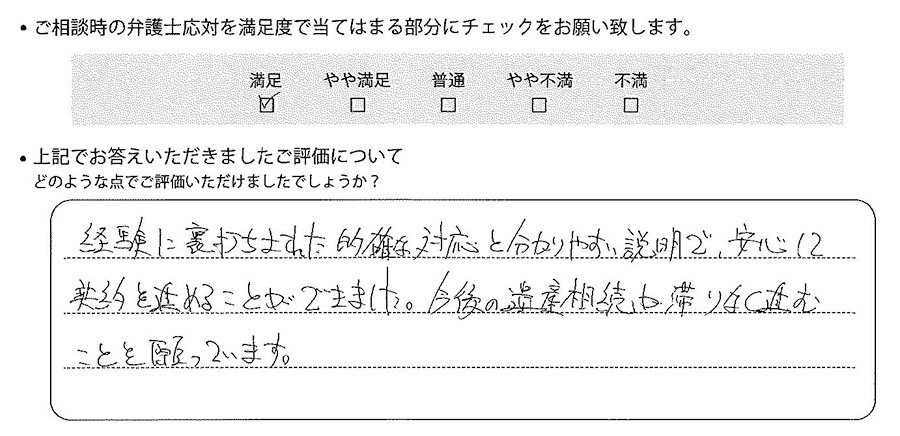 • ご相談時の弁護士応対を満足度で当てはまる部分にチェックをお願い致します。
満足 やや満足 普通 やや不満 不満
☑ ☐ ☐ ☐ ☐
• 上記でお答えいただきましたご評価について
どのような点でご評価いただけましたでしょうか？
経験に裏打ちされた的確な対応と分かりやすい説明で、安心に
契約を進めることができました。今後の遺産相続も滞りなく進む
ことを願っています。